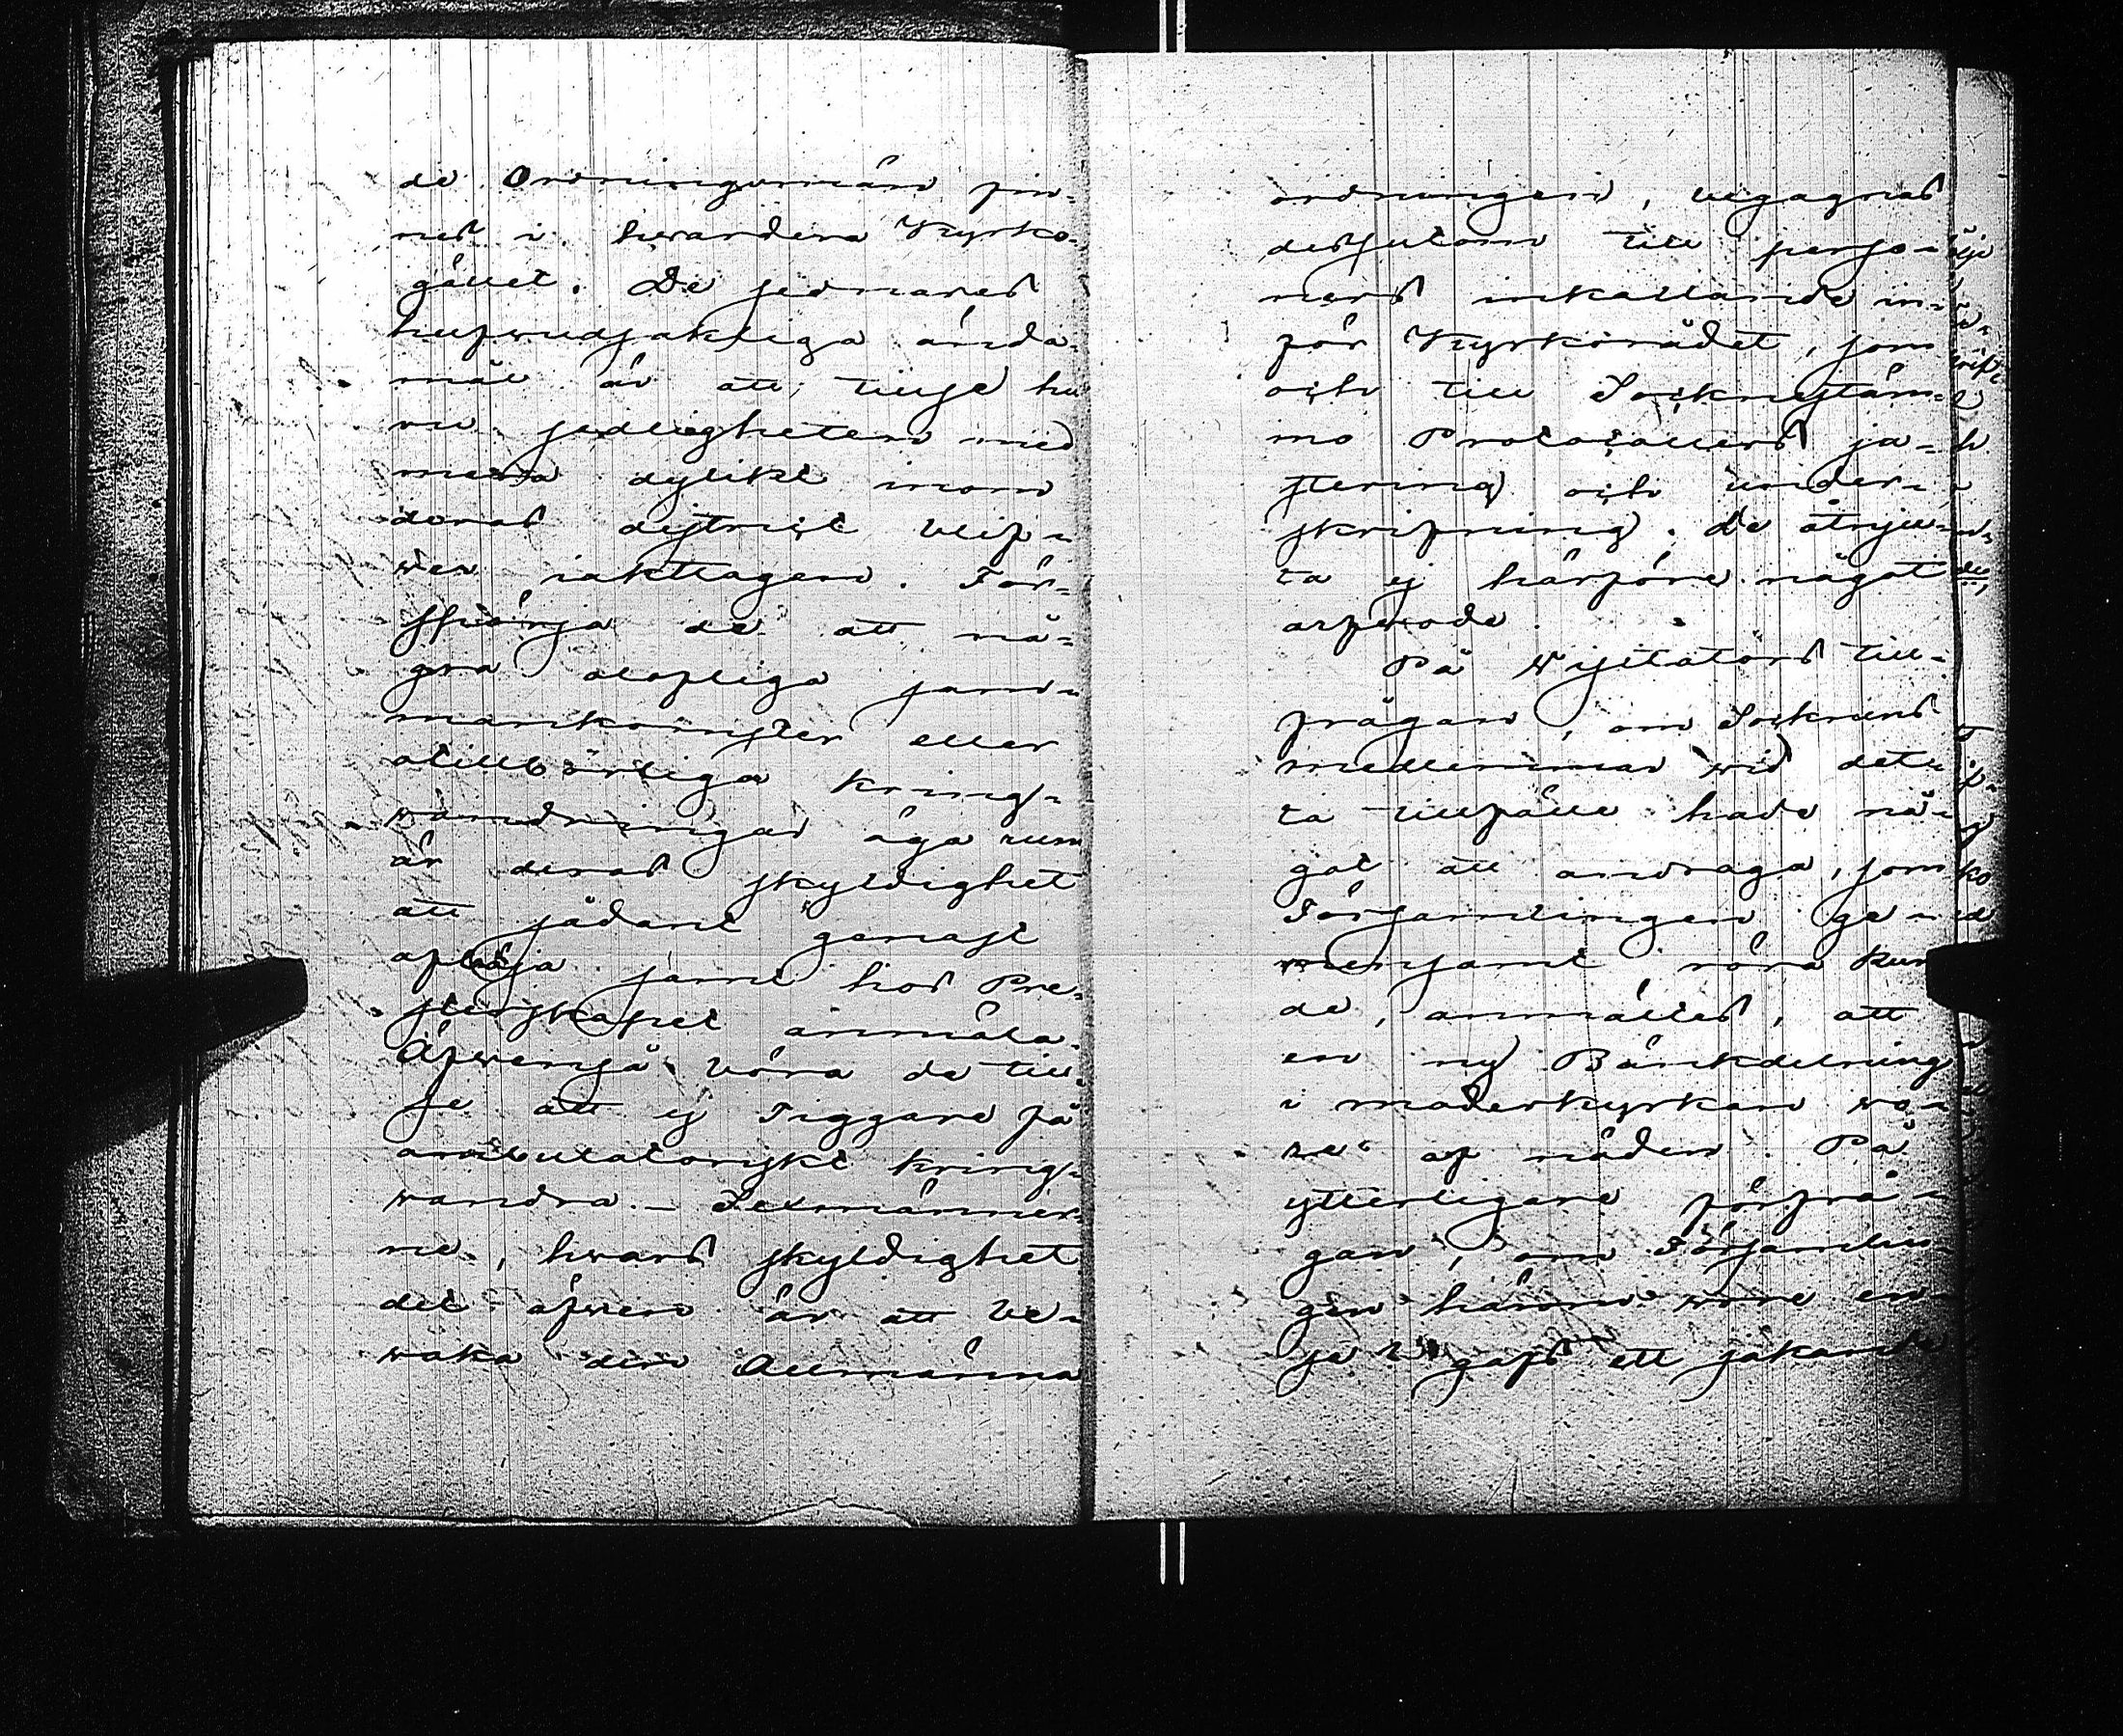 de Ordningsmän fin-
nes i hvardera Kyrko-
gället. De sednares
hufvudsakliga ända-
mål är att tillse hu
ru sedligheten med
mera dylikt inom
deras district blif-
wer iakttagen. För-
spörja de att nå-
gra olofliga sam-
mankomster eller
otillbörliga kring-
wandringar äga rum
är deras skyldighet
att sådant genast
afböja samt hos Pre-
sterskapet anmäla.
Äfwenså böra de till-
se att ej Tiggare på
ambulatoriskt kring-
wandra. – Sexmänner-
ne, hvars skyldighet
det äfwen är att be-
waka den Allmänna
ordningen, begagnas
dessutom till perso-
ners inkallande in-
för Kyrkorådet, som
och till Socknestäm-
mo Protocollers ju-
stering och under-
skrifning. De åtnju-
ta ej härföre något
arfwode.
På Wisitators till-
frågan, om Socknens
medlemmar wid det-
ta tillfälle hade nå-
got att andraga, som
Församlingen ge-
mensamt röra kun
de, anmältes, att
en ny Bänkdelning
i moderkyrkan wo-
re af nöden. På
ytterligare förfrå-
gan, om Församlin-
gen härom wore en-
se gafs ett jakande